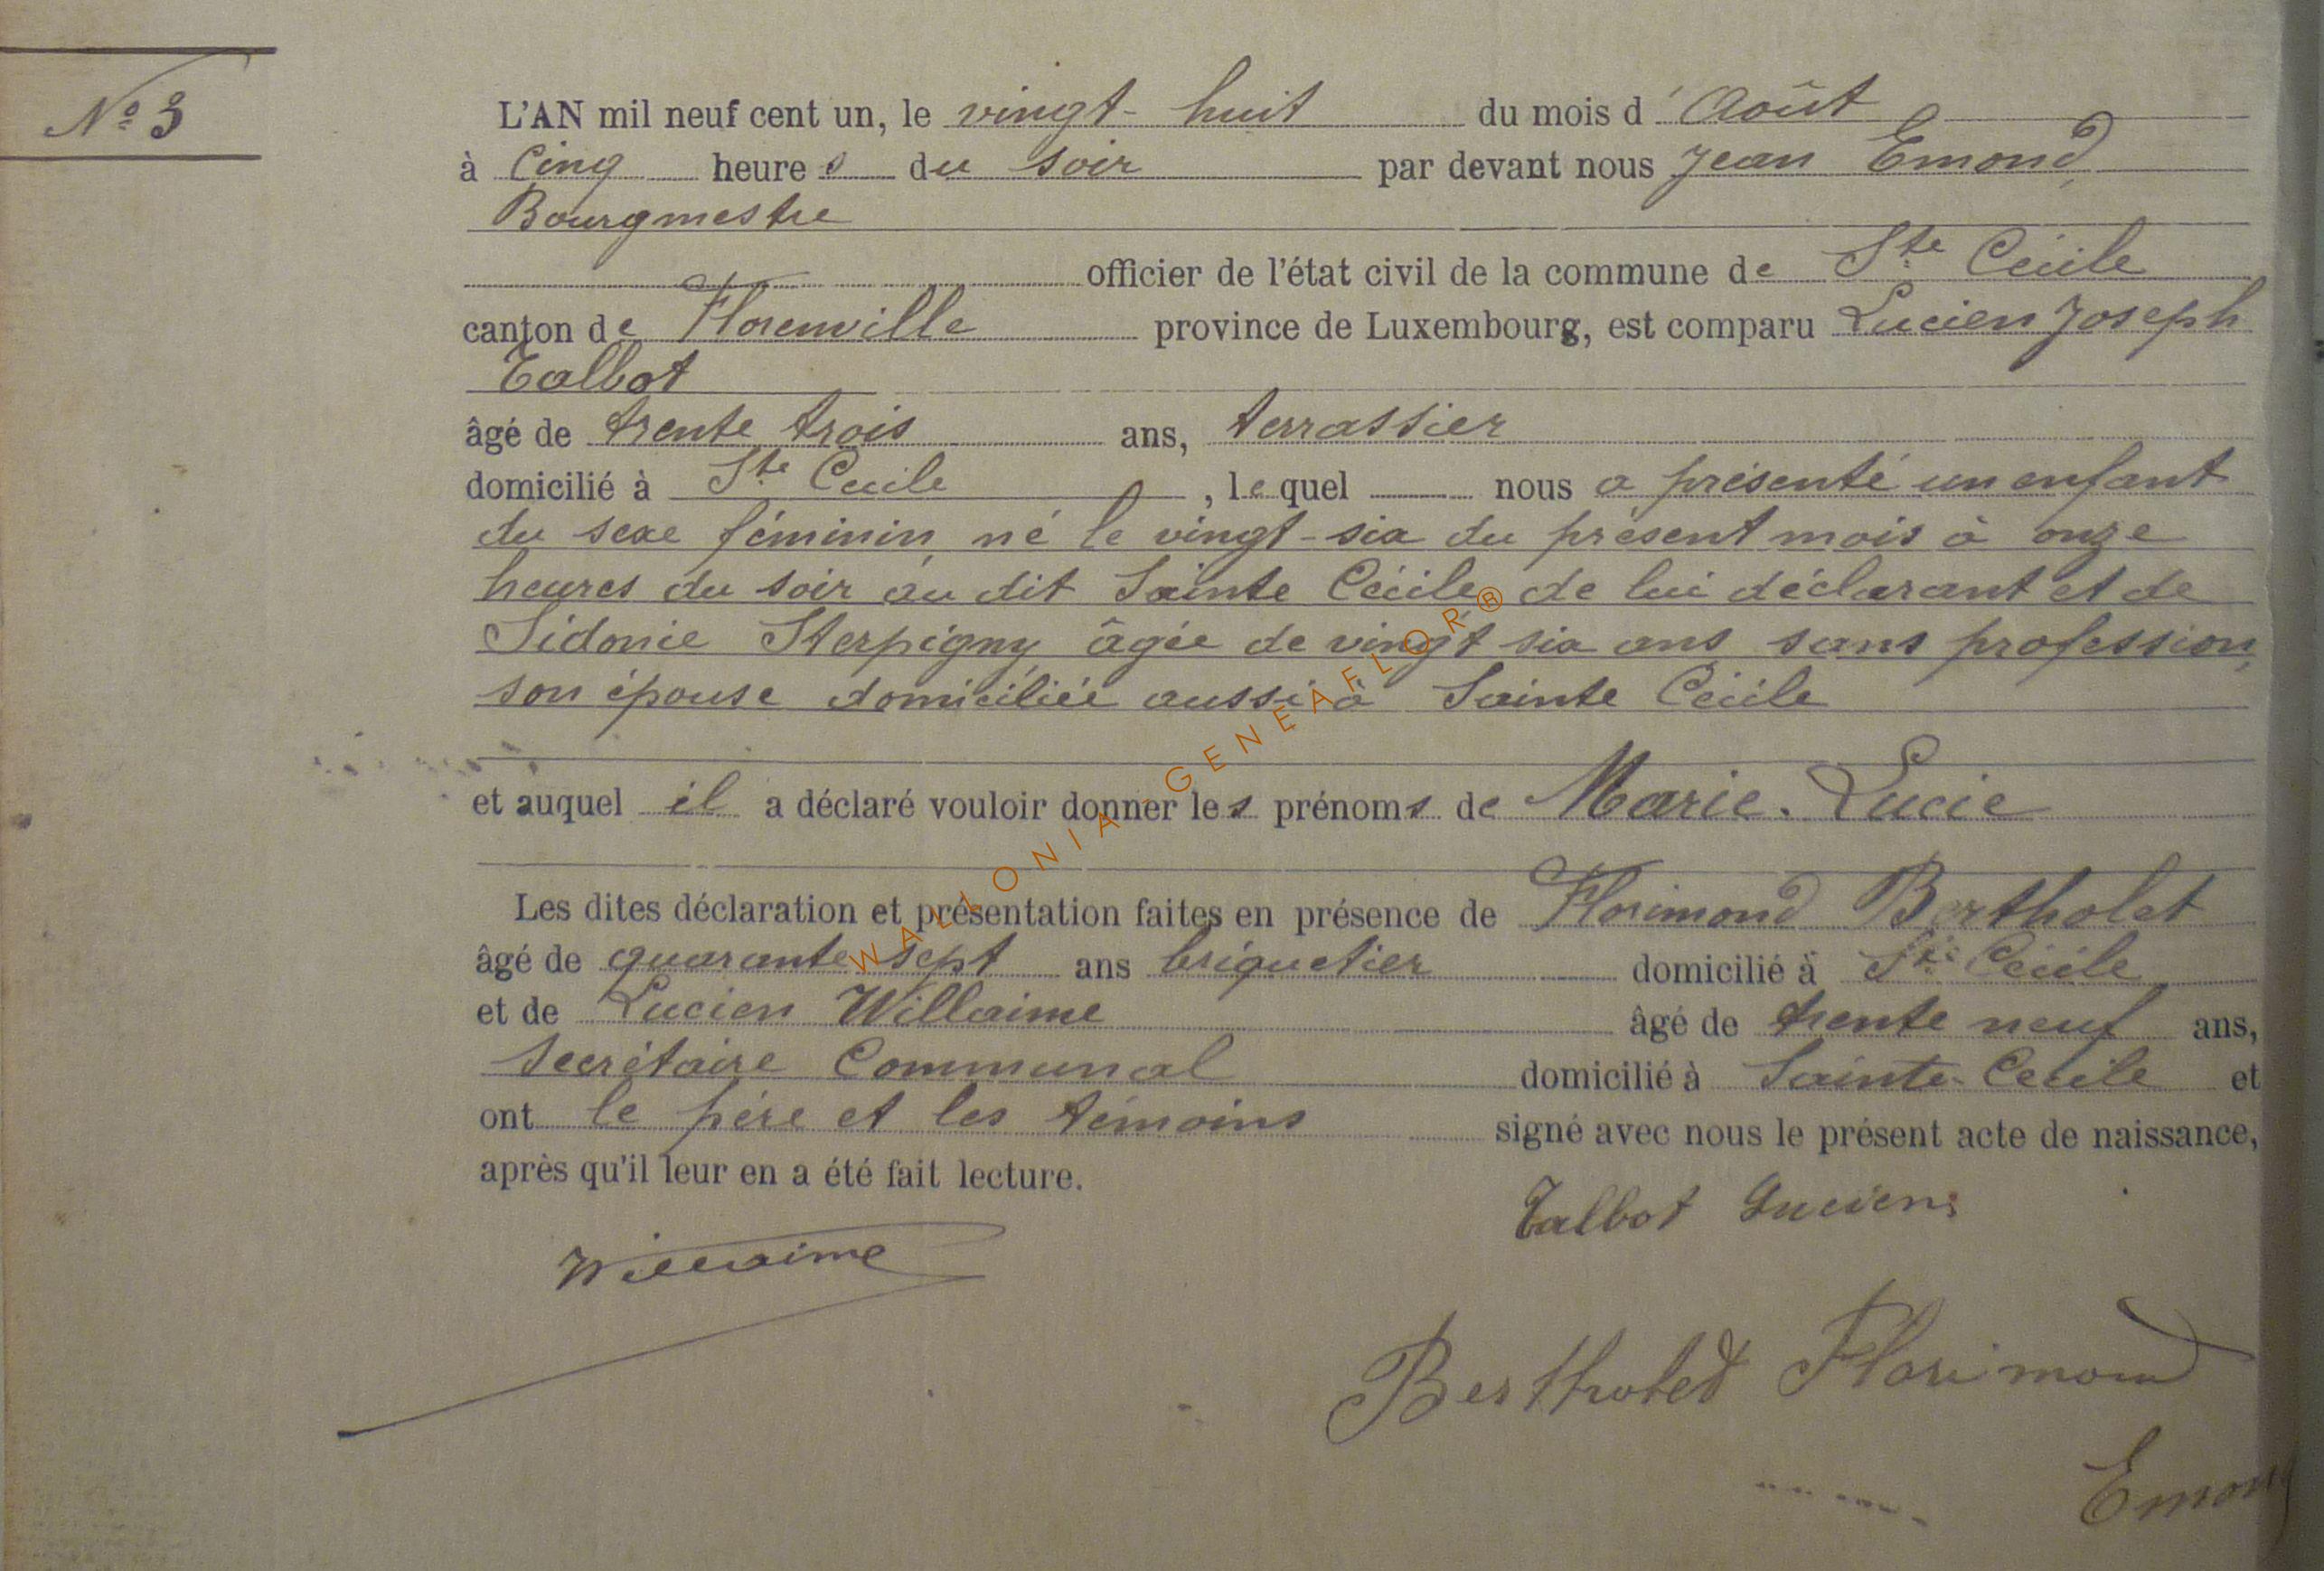 N° 3
L'AN mil neuf cent un, le vingt-huit du mois d'Août
à Cinq heures du soir par devant nous Jean Emond,
Bourgmestre
officier de l'état civil de la commune de Ste Cécile
canton de Florenville province de Luxembourg, est comparu Lucien Joseph
Talbot
âgé de trente trois ans, terrassier
domicilié à Ste Cecile, lequel nous a présenté un enfant
du sexe féminin, né le vingt-six du présent mois à onze
heures du soir au dit Sainte Cécile, de lui déclarant et de
Sidonie Sterpigny, âgée de vingt six ans sans profession,
son épouse domiciliée aussi à Sainte Cécile
et auquel il a déclaré vouloir donner les prénoms de Marie. Lucie
Les dites déclaration et présentation faites en présence de Florimond Bertholet
âgé de quarante sept ans briquetier domicilié à Ste Cécile
et de Lucien Willaime âgé de trente neuf ans,
secrétaire Communal domicilié à Sainte-Cecile et
ont le père et les témoins signé avec nous le présent acte de naissance,
après qu'il leur en a été fait lecture.
Talbot Lucien
Willaime
Bertholet Florimond
Emond
WALLONIA - GENEAFLOR®